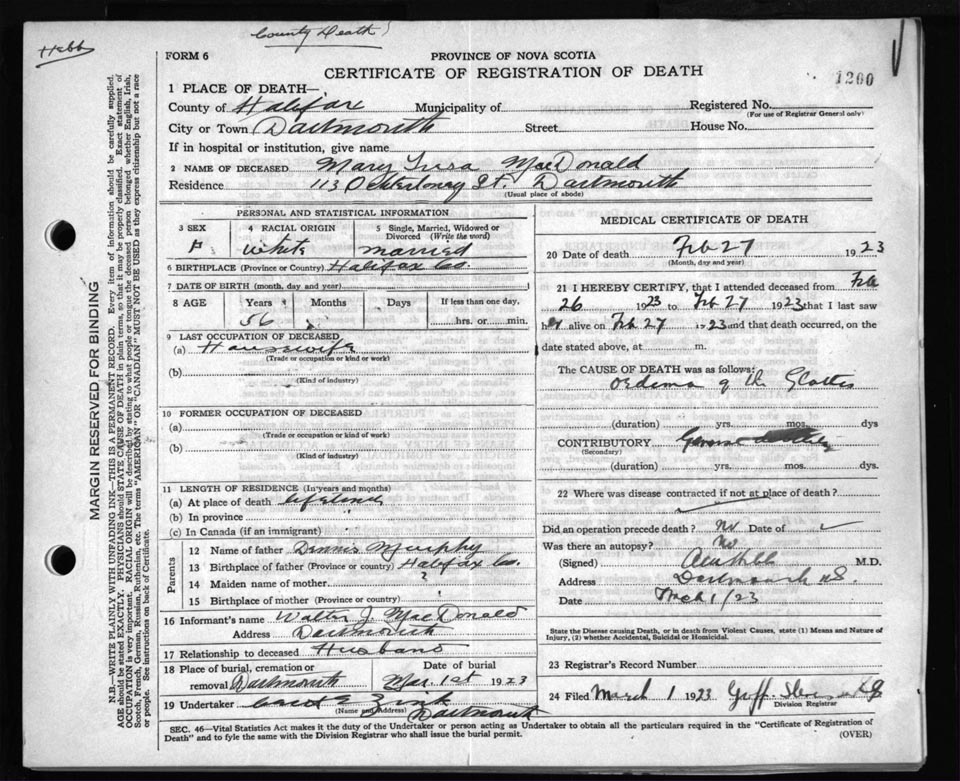 County Death
Hebb
FORM 6
PROVINCE OF NOVA SCOTIA
CERTIFICATE OF REGISTRATION OF DEATH
1200
1 PLACE OF DEATH—
County of Halifax Municipality of Registered No.
(For use of Registrar General only)
City or Town Dartmouth Street House No.
If in hospital or institution, give name
2 NAME OF DECEASED Mary MacDonald
Residence 113 Ochterloney St. Dartmouth
(Usual place of abode)
MARGIN RESERVED FOR BINDING
N.B.—WRITE PLAINLY WITH UNFADING INK—THIS IS A PERMANENT RECORD. Every item of information should be carefully supplied.
AGE should be stated EXACTLY. PHYSICIANS should STATE CAUSE OF DEATH in plain terms, so that it may be properly classified. Exact statement of
OCCUPATION is very important. RACIAL ORIGIN will be described by stating to what people or tongue the deceased person belonged whether English, Irish,
Scotch, French, German, Russian, Ruthenian, etc. The terms "AMERICAN" OR "CANADIAN" MUST NOT BE USED as they express citizenship but not a race
or people. See instructions on back of Certificate.
PERSONAL AND STATISTICAL INFORMATION
3 SEX 4 RACIAL ORIGIN 5 Single, Married, Widowed or
Divorced (Write the word)
F White married
6 BIRTHPLACE (Province or Country) Halifax Co.
7 DATE OF BIRTH (month, day and year)
8 AGE Years Months Days If less than one day,
56 hrs. or min.
9 LAST OCCUPATION OF DECEASED
(a) Housewife
(Trade or occupation or kind of work)
(b)
(Kind of industry)
10 FORMER OCCUPATION OF DECEASED
(a)
(Trade or occupation or kind of work)
(b)
(Kind of industry)
11 LENGTH OF RESIDENCE (In years and months)
(a) At place of death lifetime
(b) In province
(c) In Canada (if an immigrant)
Parents
12 Name of father Dennis Murphy
13 Birthplace of father (Province or country) Halifax Co.
14 Maiden name of mother ?
15 Birthplace of mother (Province or country)
16 Informant's name Walter J. MacDonald
Address Dartmouth
17 Relationship to deceased Husband
18 Place of burial, cremation or Date of burial
removal Dartmouth Mar. 1st 1923
19 Undertaker Zink
(Name and Address) Dartmouth
MEDICAL CERTIFICATE OF DEATH
20 Date of death Feb 27 1923
(Month, day and year)
21 I HEREBY CERTIFY, that I attended deceased from Feb
26 1923 to Feb 27 1923 that I last saw
her alive on Feb 27 1923 and that death occurred, on the
date stated above, at m.
The CAUSE OF DEATH was as follows:
Oedema of the Glottis
(duration) yrs. mos. days
CONTRIBUTORY
(Secondary)
(duration) yrs. mos. dys.
22 Where was disease contracted if not at place of death?
Did an operation precede death? No Date of
Was there an autopsy? No
(Signed) Hebb M.D.
Address Dartmouth N.S.
Date Mch 1/23
State the Disease causing Death, or in death from Violent Causes, state (1) Means and Nature of
Injury, (2) whether Accidental, Suicidal or Homicidal.
23 Registrar's Record Number
24 Filed March 1 1923
Division Registrar
SEC. 46—Vital Statistics Act makes it the duty of the Undertaker or person acting as Undertaker to obtain all the particulars required in the "Certificate of Registration of
Death" and to fyle the same with the Division Registrar who shall issue the burial permit.
(OVER)